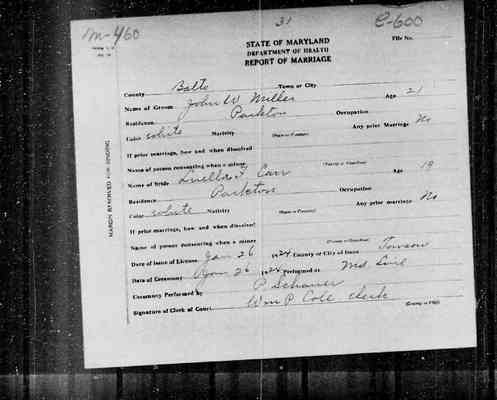 m-460 31 C-600
STATE OF MARYLAND File No.
DEPARTMENT OF HEALTH
REPORT OF MARRIAGE
County Balto Town or City
Name of Groom John W Miller Age 21
Residence Parkton Occupation
Color white Nativity (State or Country) Any prior Marriage No
If prior marriage, how and when dissolved
Name of person consenting when a minor (Parent or Guardian)
Name of Bride Luella F Carr Age 19
Residence Parkton Occupation
Color white Nativity (State or Country) Any prior marriage No
If prior marriage, how and when dissolved
Name of person consenting when a minor (Parent or Guardian)
Date of Issue of License Jan 26 1924 County or City of Issue Towson
Date of Ceremony Jan 26 1924 Performed at Md Line
Ceremony Performed by P Schaner
Signature of Clerk of Court Wm P Cole Clerk
(County or City)
MARGIN RESERVED FOR BINDING